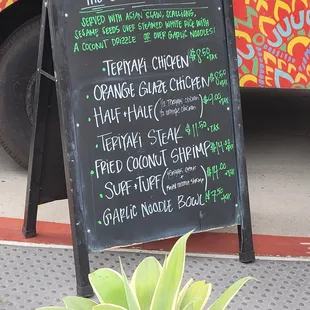 SERVED WITH ASIAN SLAW, SCALLIONS,
SESAME SEEDS OVER STEAMED WHITE RICE WITH
A COCONUT DRIZZLE OR OVER GARLIC NOODLES!
TERIYAKI CHICKEN $8.50
ORANGE GLAZE CHICKEN $8.50
HALF & HALF (½ TERIYAKI CHICKEN ½ ORANGE CHICKEN) $9.00
TERIYAKI STEAK $11.50
FRIED COCONUT SHRIMP $14.00
SURF & TURF (TERIYAKI STEAK + FRIED COCONUT SHRIMP) $14.00
GARLIC NOODLE BOWL $7.50